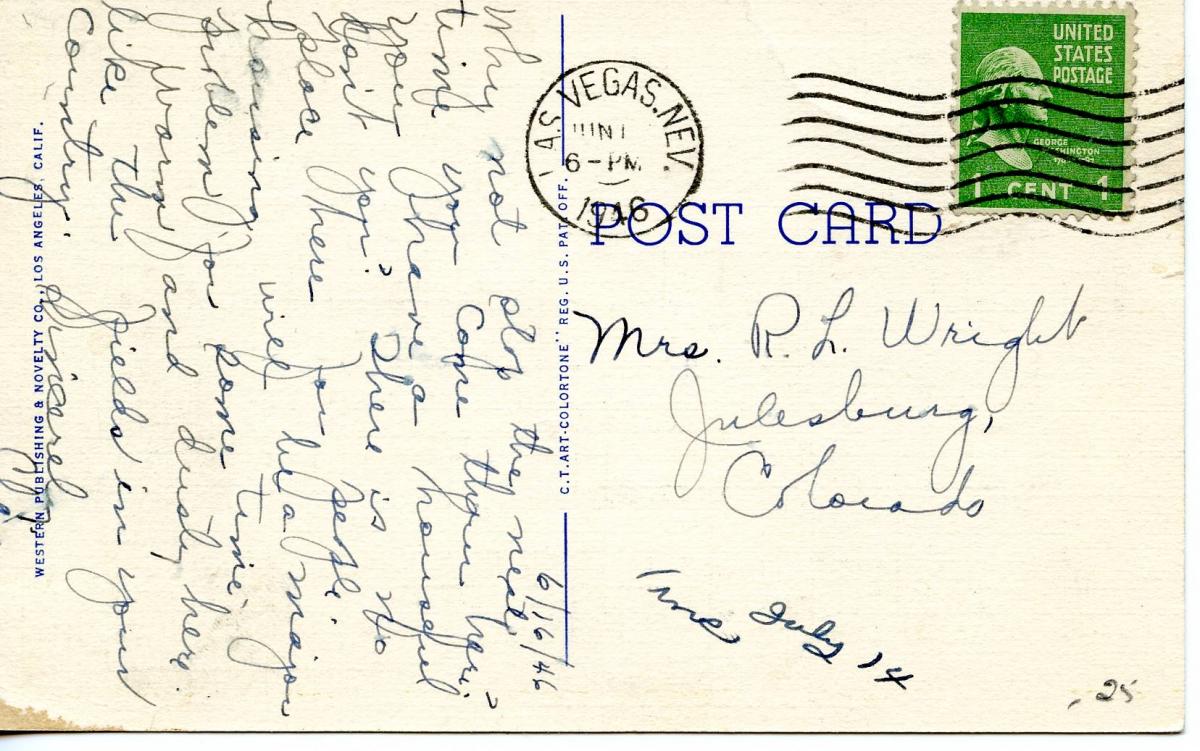 6/16/46
Why not stop the next
time you come thru here.
You have a houseful
don't you? There is no
place here for people.
housing will be a major
problem for some time.
Warm and dusty here.
like the fields in your
country.
Sincerely,
WESTERN PUBLISHING & NOVELTY CO., LOS ANGELES, CALIF.
C.T. ART-COLORTONE" REG. U.S. PAT. OFF.
LAS VEGAS. NEV.
JUN
6-PM
1946
UNITED
STATES
POSTAGE
GEORGE
WASHINGTON
1 CENT 1
POST CARD
Mrs. R. L. Wright
Julesburg,
Colorado
July 14
.25